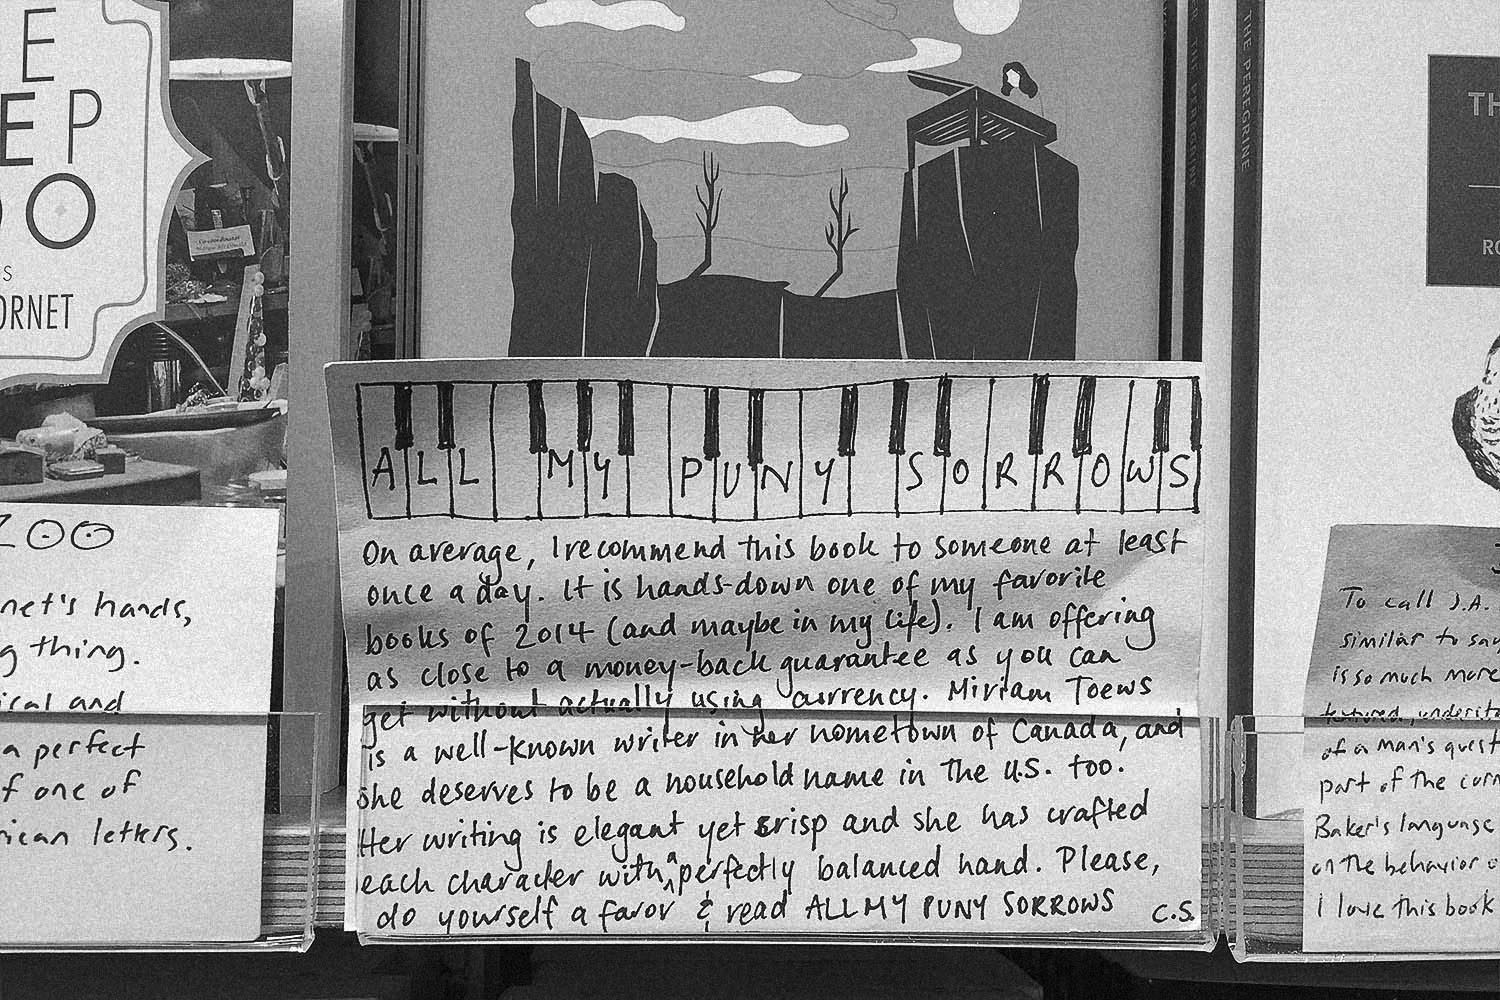 E
EP
OO
S
ORNET
Co-coordinator
ZOO
net's hands,
g thing.
ical and
a perfect
f one of
rican letters.
THE PEREGRINE
THE PEREGRINE
ALL MY PUNY SORROWS
On average, I recommend this book to someone at least
once a day. It is hands-down one of my favorite
books of 2014 (and maybe in my life). I am offering
as close to a money-back guarantee as you can
get without actually using currency. Miriam Toews
is a well-known writer in her hometown of Canada, and
she deserves to be a household name in the U.S. too.
Her writing is elegant yet crisp and she has crafted
each character with a perfectly balanced hand. Please,
do yourself a favor & read ALL MY PUNY SORROWS C.S.
TH
RO
J
To call J.A.
similar to say
is so much more
textured, understa
of a man's quest
part of the corn
Baker's language
on the behavior o
I love this book